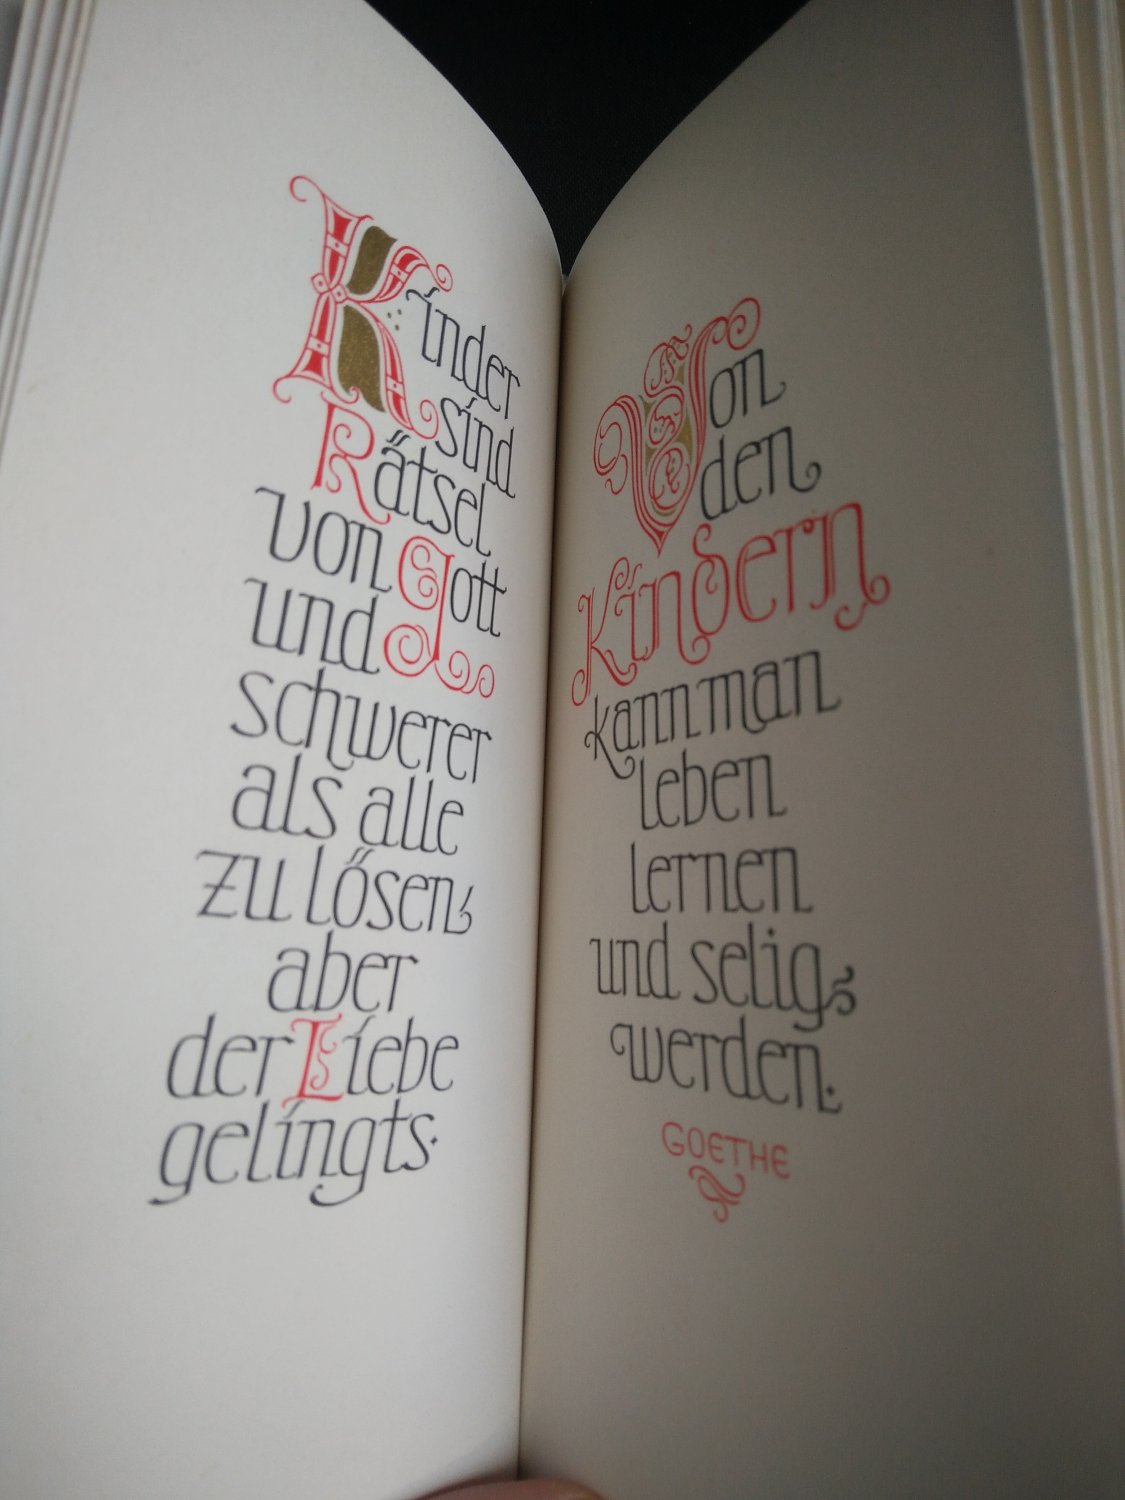 Kinder
sind
Rätsel
von Gott
und
schwerer
als alle
zu lösen,
aber
der Liebe
gelingts.
Von
den
Kindern
kann man
leben
lernen
und selig
werden.
GOETHE